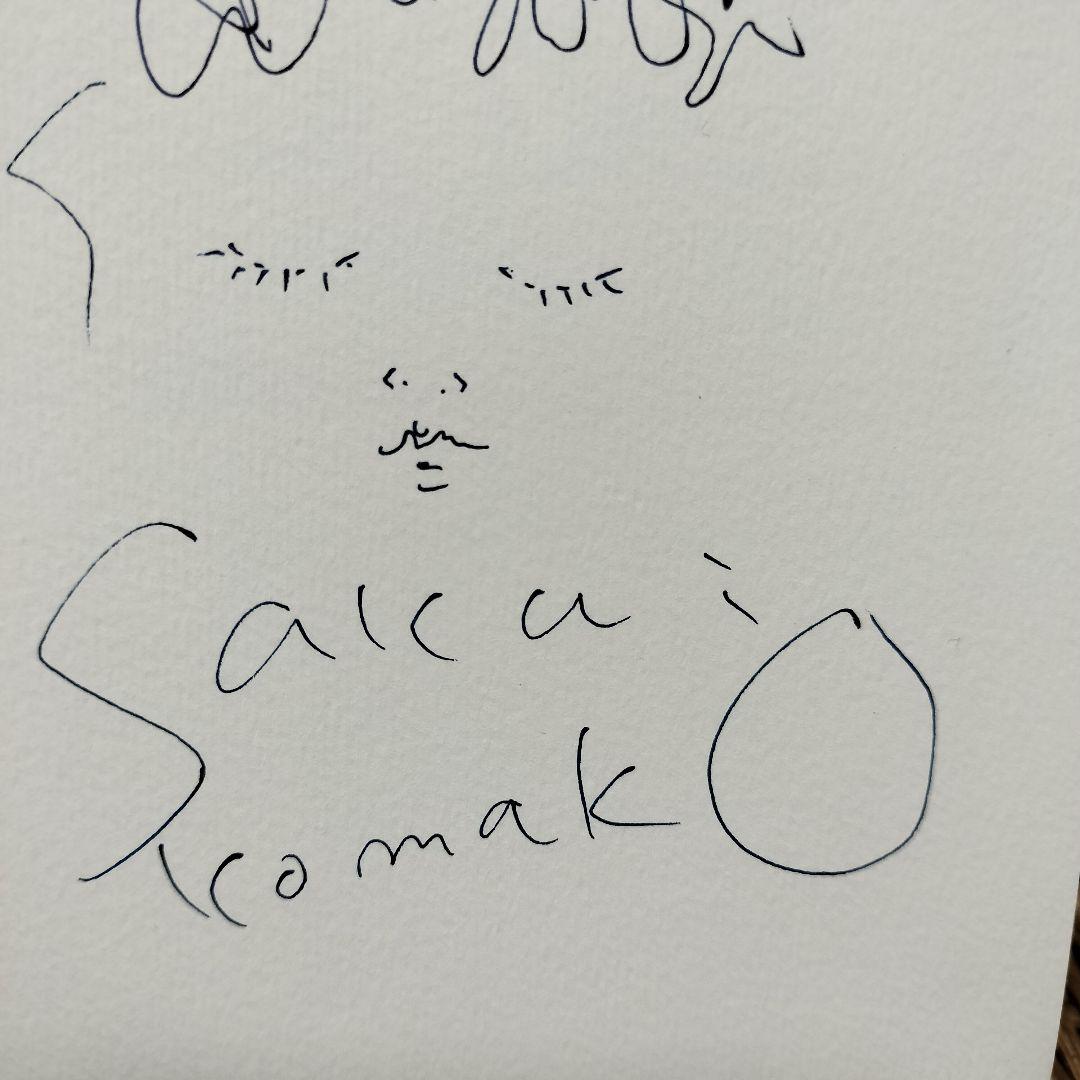 Sakai
Komako